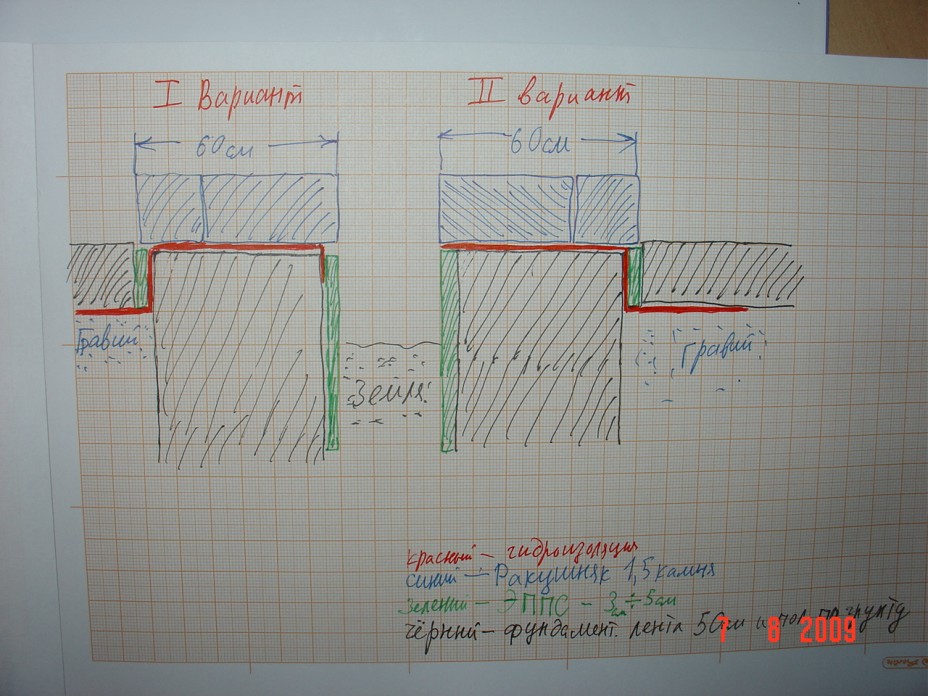 I Вариант
II вариант
60см
60см
Гравий
Земля
Гравий
красный – гидроизоляция
синий – Ракушняк 1,5 камня
зелений – ЭППС – 3см÷5см
чёрный – фундамент. лента 50см и пол по грунту
7 8 2009